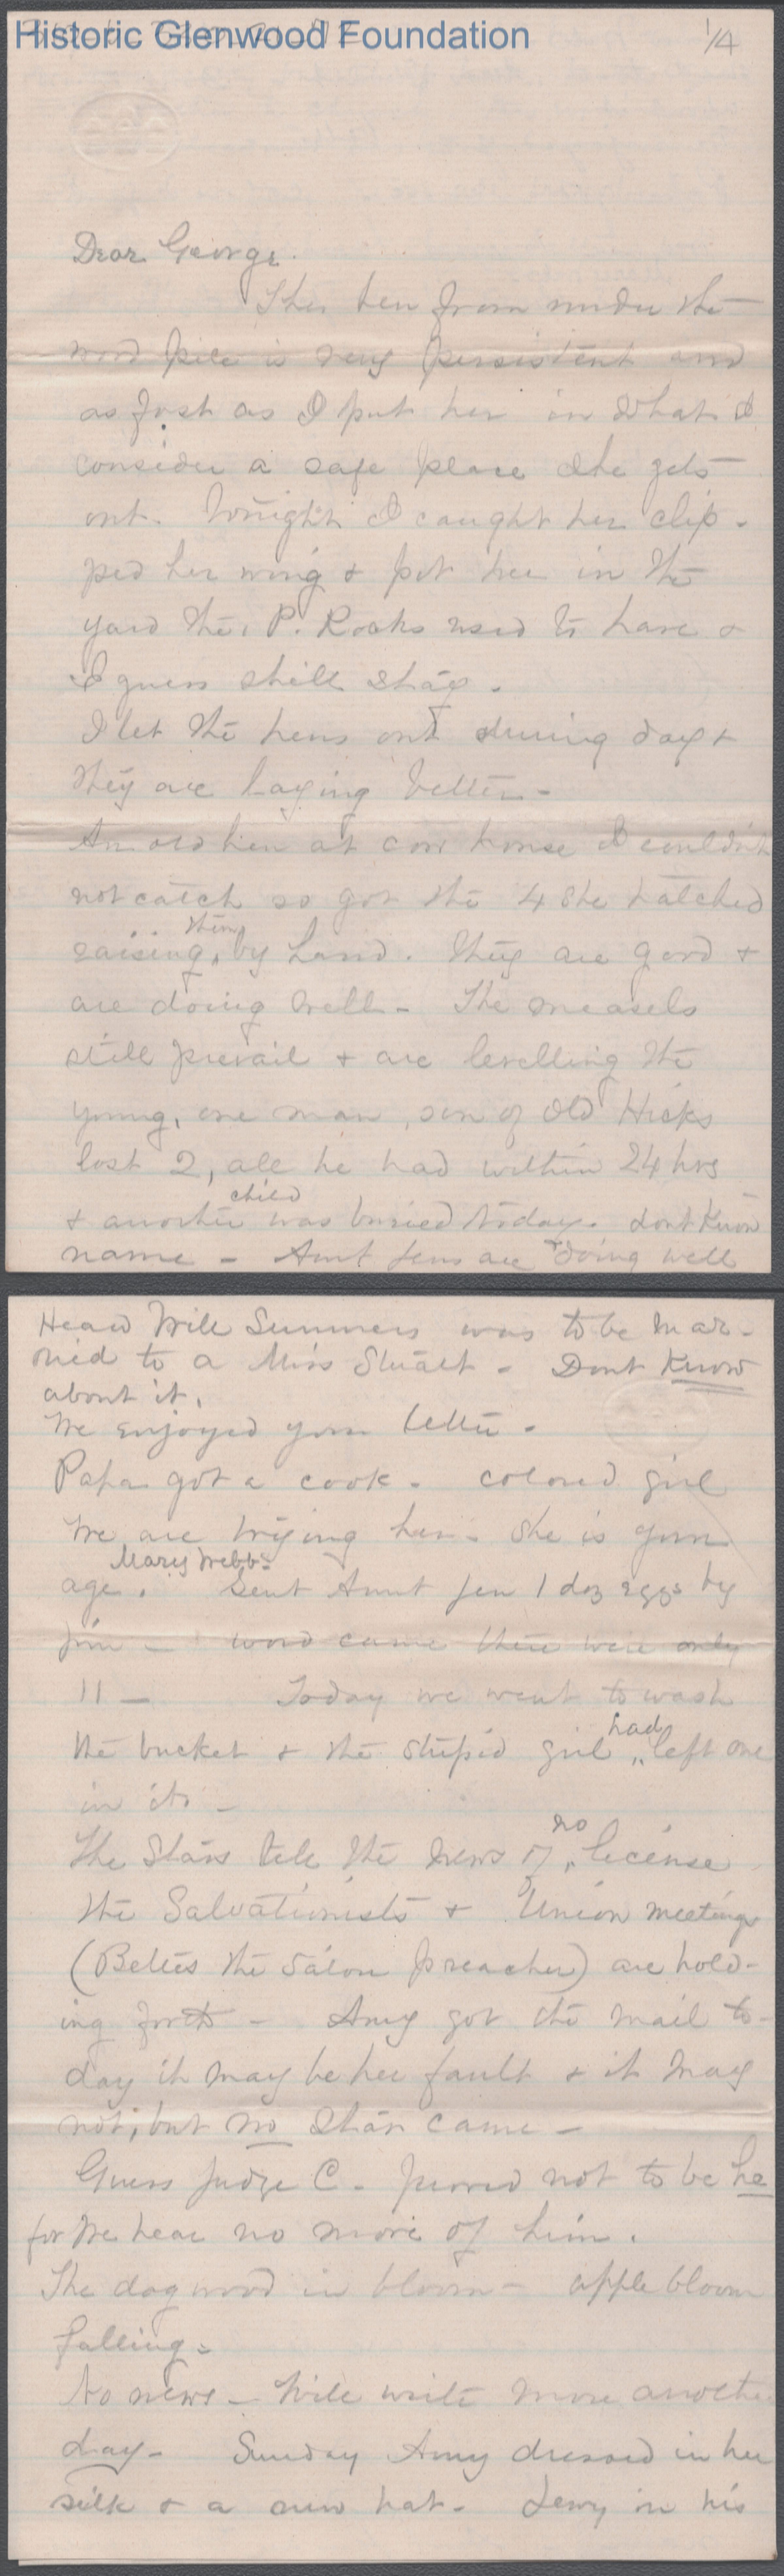 Historic Glenwood Foundation
1/4
Dear George.
The hen from under the
wood pile is very persistent and
as fast as I put her in what I
consider a safe place she gets
out. Tonight I caught her clip-
ped her wing & put her in the
yard the P. Rocks used to have &
I guess shell stay.
I let the hens out during day &
they are laying better -
An old hen at cow house I couldnt
not catch so got the 4 she hatched
raising them by hand. They are good &
are doing well - The measels
still prevail & are levelling the
young, one man, son of Old Hicks
lost 2, all he had within 24 hrs
& another child was buried today. dont know
name - Aunt Jens are doing well
Heard Will Summers was to be mar-
ried to a Miss Stuart - Dont know
about it.
We enjoyed your letter -
Papa got a cook - colored girl
We are trying her - She is your
age. Mary Webb - Sent Aunt Jen 1 doz eggs by
Jim - word came there were only
11 - Today we went to wash
the bucket & the stupid girl had left one
in it -
The Stars tell the news of no license
the Salvationists & Union meeting
(Bettes the saloon preacher) are hold-
ing forth - Amy got the mail to-
day it may be her fault & it may
not, but no Star came -
Guess Judge C. proved not to be he
for we hear no more of him.
The dogwood in bloom - apple bloom
falling -
No news - Will write more another
day - Sunday Amy dressed in her
silk & a new hat - in his